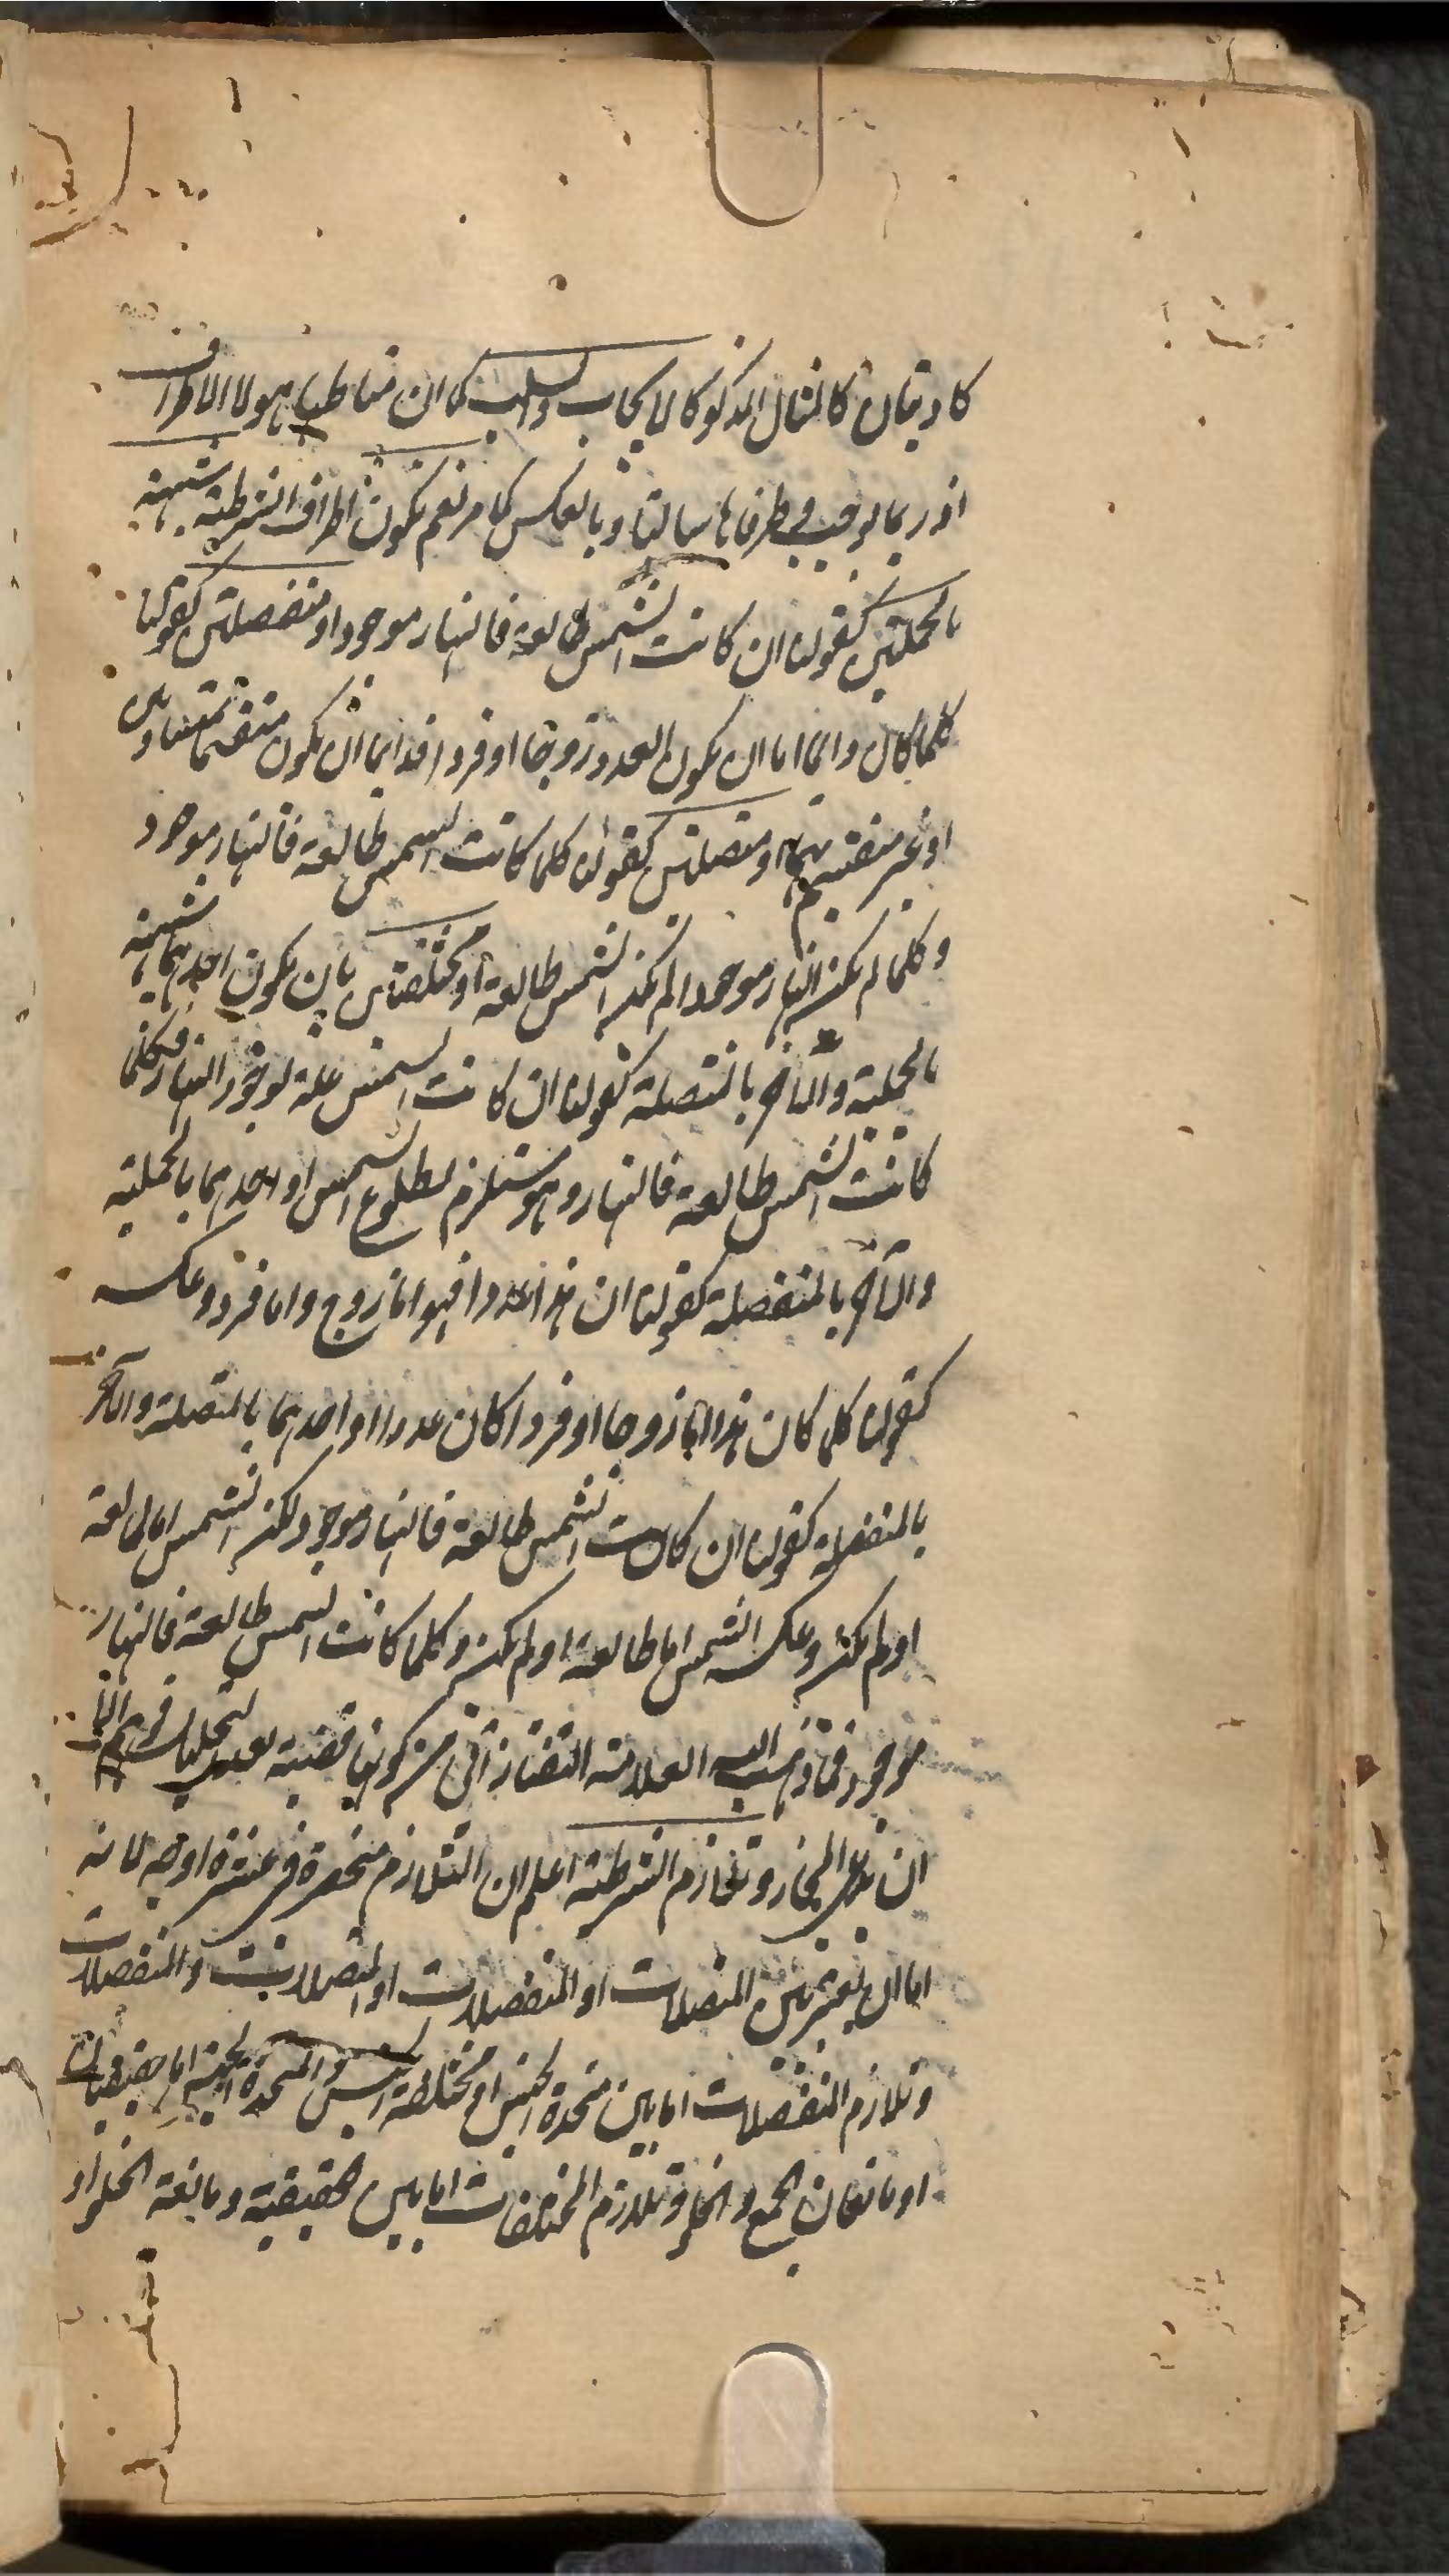 كاذبتان كالمثال المذكور كالايجاب والسلب كما ان مناطها هو لا الاطراف
اذ ربما يوجب في طرفاها سالبتا وبالعكس كما مر نعم يكون اطراف الشرطية شبيهة
بالحمليتين كقولنا ان كانت الشمس طالعة فالنهار موجود او منفصلتين كقولنا
كلما كان دائما اما ان يكون العدد زوجا او فردا فدايما ان يكون منقسما بمتساويين
او غير منقسم بهما او متصلتين كقولنا كلما كانت الشمس طالعة فالنهار موجود
وكلما لم يكن النهار موجودا لم يكن الشمس طالعة او مختلفتين بان يكون احدهما شبيهة
بالحملية والآخر بالمتصلة كقولنا ان كانت الشمس علة لوجود النهار فكلما
كانت الشمس طالعة فالنهار وهو مستلزم لطلوع الشمس او احدهما بالحملية
والآخر بالمنفصلة كقولنا ان هذا عددا فهو اما زوج واما فرد وعكسه
كقولنا كلما كان هذا اما زوجا او فردا كان عددا او احدهما بالمتصلة والآخر
بالمنفصلة كقولنا ان كانت الشمس طالعة فالنهار موجود لكن الشمس اما طالعة
او لم يكن وعكسه الشمس اما طالعة او لم يكن وكلما كانت الشمس طالعة فالنهار
موجود فما ذهب اليه العلامة التفتازاني من كونها قضية بعد التحليل
ان على المجاز وتلازم الشرطية اعلم ان التلازم منحصرة في عشرة اوجه لانه
اما ان يعتبر بين المتصلات او المنفصلات او المتصلات والمنفصلات
وتلازم المنفصلات اما بين متحدة الجنس او مختلفة الجنس والمتحدة الجنس اما حقيقيتان
او مانعتان الجمع والخلو وتلازم المختلفات اما بين الحقيقية ومانعة الخلو او